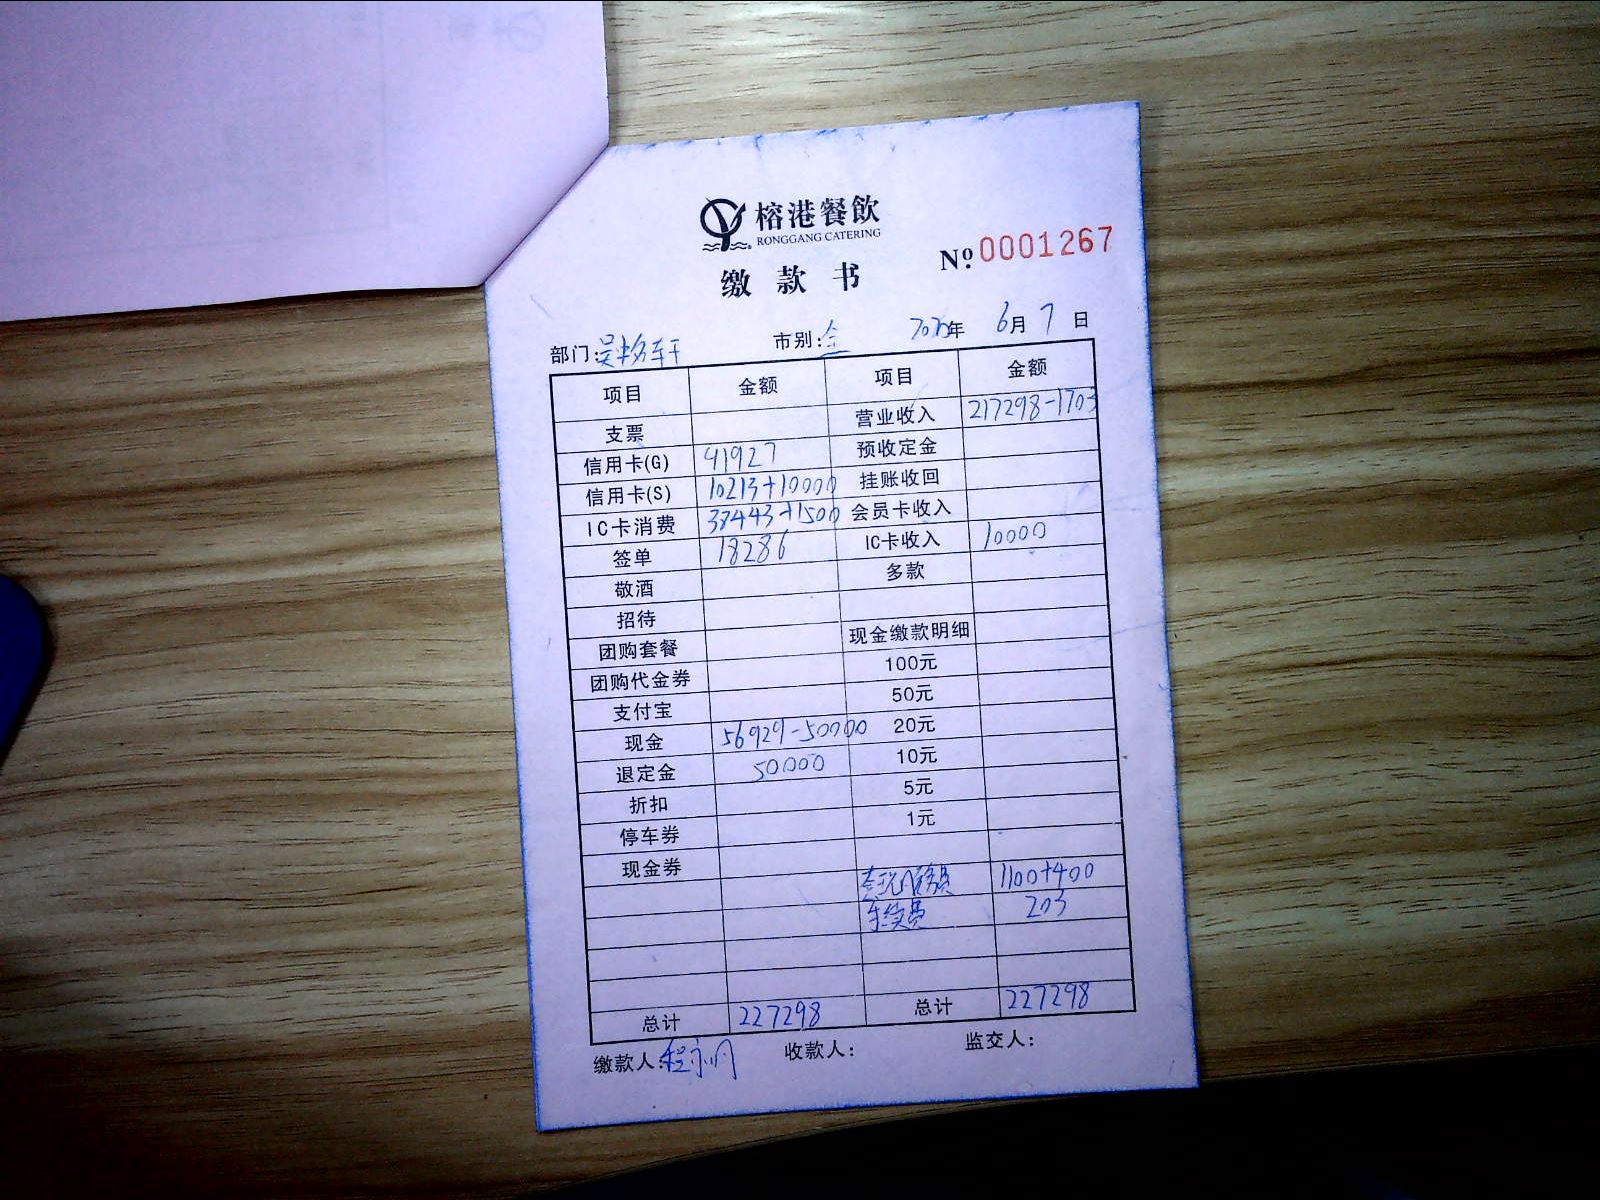 榕港餐飲
RONGGANG CATERING
缴款书
Nº 0001267
部门: 市别:全 年 6月 7 日
项目 金额 项目 金额
支票 营业收入 217298-1703
信用卡(G) 41927 预收定金
信用卡(S) 10213+10000 挂账收回
IC卡消费 38443+1500 会员卡收入
签单 18286 IC卡收入 10000
敬酒 多款
招待
团购套餐 现金缴款明细
团购代金券 100元
支付宝 50元
现金 56929-50000 20元
退定金 50000 10元
折扣 5元
停车券 1元
现金券
1100+400
手续费 203
总计 227298 总计 227298
缴款人: 收款人: 监交人: